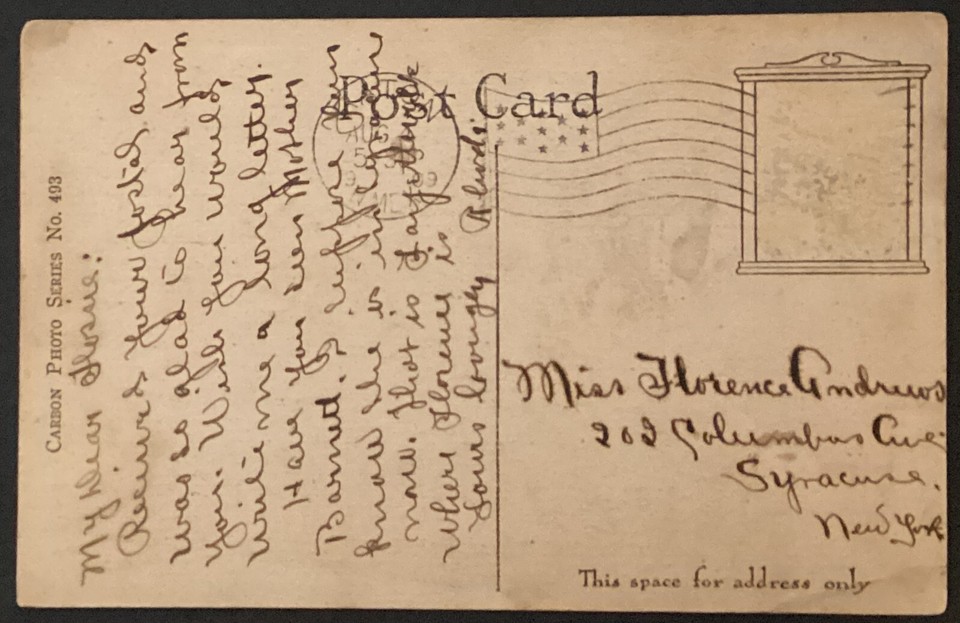 Post Card
CARBON PHOTO SERIES NO. 493
My Dear Flossie:
Received your postal and
was so glad to hear from
you. Wish you would
write me a long letter.
Have you seen Mother
I suppose you
know she is in
now. That is I think
where Florence is
Yours lovingly
Miss Florence Andrews
202 Columbus Ave
Syracuse.
New York
This space for address only